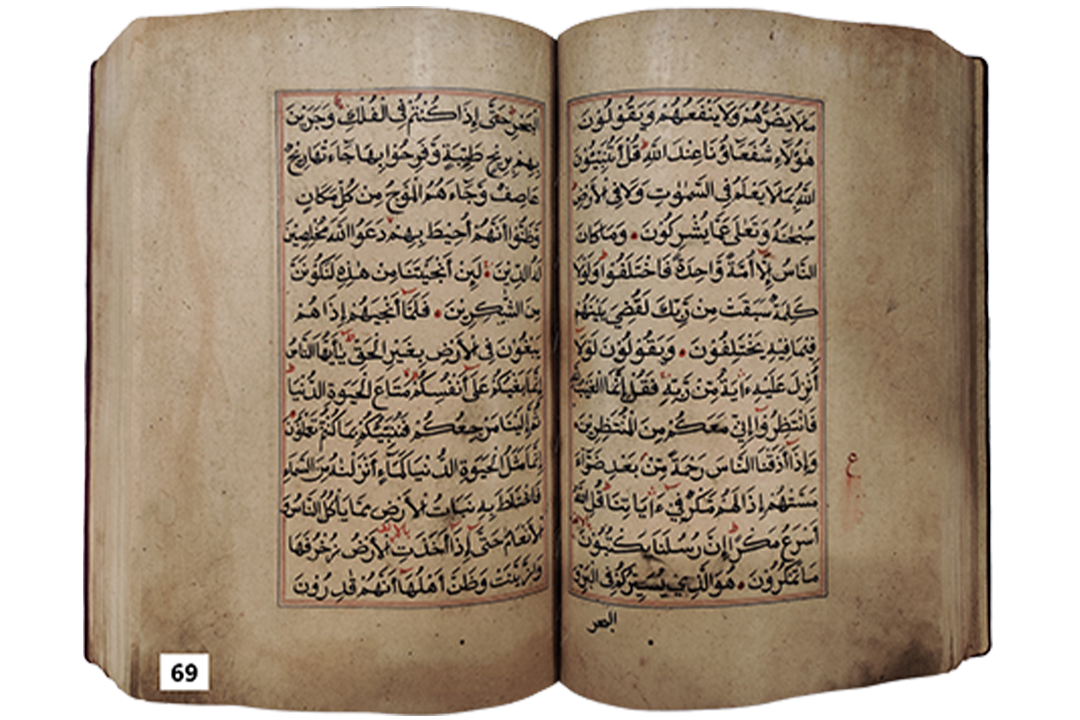 مَا لَا يَضُرُّهُمْ وَلَا يَنْفَعُهُمْ وَيَقُوْلُوْنَ
هٰؤُلَاءِ شُفَعَاؤُنَا عِنْدَ اللّٰهِ قُلْ أَتُنَبِّئُوْنَ
اللّٰهَ بِمَا لَا يَعْلَمُ فِى السَّمٰوٰتِ وَلَا فِى الْأَرْضِ
سُبْحٰنَهُ وَتَعٰلٰى عَمَّا يُشْرِكُوْنَ • وَمَا كَانَ
النَّاسُ إِلَّا أُمَّةً وَّاحِدَةً فَاخْتَلَفُوْا وَلَوْلَا
كَلِمَةٌ سَبَقَتْ مِنْ رَّبِّكَ لَقُضِيَ بَيْنَهُمْ
فِيْمَا فِيْهِ يَخْتَلِفُوْنَ • وَيَقُوْلُوْنَ لَوْلَا
أُنْزِلَ عَلَيْهِ ءَايَةٌ مِّنْ رَّبِّهِ فَقُلْ إِنَّمَا الْغَيْبُ
فَانْتَظِرُوْا إِنِّيْ مَعَكُمْ مِنَ الْمُنْتَظِرِيْنَ
وَإِذَا أَذَقْنَا النَّاسَ رَحْمَةً مِّنْ بَعْدِ ضَرَّاءَ
مَسَّتْهُمْ إِذَا لَهُمْ مَّكْرٌ فِيْ ءَايَاتِنَا قُلِ اللّٰهُ
أَسْرَعُ مَكْرًا إِنَّ رُسُلَنَا يَكْتُبُوْنَ
مَا تَمْكُرُوْنَ • هُوَ الَّذِيْ يُسَيِّرُكُمْ فِى الْبَرِّ وَ
ع
البحر
الْبَحْرِ حَتّٰى إِذَا كُنْتُمْ فِى الْفُلْكِ وَجَرَيْنَ
بِهِمْ بِرِيْحٍ طَيِّبَةٍ وَّفَرِحُوْا بِهَا جَاءَتْهَا رِيْحٌ
عَاصِفٌ وَّجَاءَهُمُ الْمَوْجُ مِنْ كُلِّ مَكَانٍ
وَّظَنُّوْا أَنَّهُمْ أُحِيْطَ بِهِمْ دَعَوُا اللّٰهَ مُخْلِصِيْنَ
لَهُ الدِّيْنَ • لَئِنْ أَنْجَيْتَنَا مِنْ هٰذِهِ لَنَكُوْنَنَّ
مِنَ الشّٰكِرِيْنَ • فَلَمَّا أَنْجٰيهُمْ إِذَا هُمْ
يَبْغُوْنَ فِى الْأَرْضِ بِغَيْرِ الْحَقِّ يٰأَيُّهَا النَّاسُ
إِنَّمَا بَغْيُكُمْ عَلٰى أَنْفُسِكُمْ مَتَاعَ الْحَيٰوةِ الدُّنْيَا
ثُمَّ إِلَيْنَا مَرْجِعُكُمْ فَنُنَبِّئُكُمْ بِمَا كُنْتُمْ تَعْمَلُوْنَ
إِنَّمَا مَثَلُ الْحَيٰوةِ الدُّنْيَا كَمَاءٍ أَنْزَلْنٰهُ مِنَ السَّمَاءِ
فَاخْتَلَطَ بِهِ نَبَاتُ الْأَرْضِ مِمَّا يَأْكُلُ النَّاسُ وَ
الْأَنْعَامُ حَتّٰى إِذَا أَخَذَتِ الْأَرْضُ زُخْرُفَهَا
وَازَّيَّنَتْ وَظَنَّ أَهْلُهَا أَنَّهُمْ قٰدِرُوْنَ
69